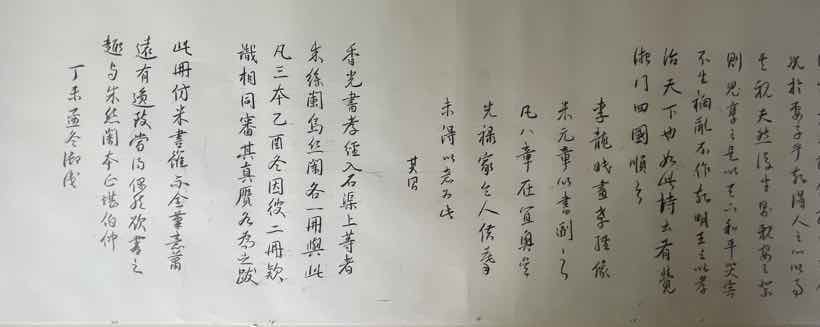 況於妻子乎故得人之心以事
其親夫然後生則親安之祭
則鬼享之是以天下和平災害
不生禍亂不作故明王之以孝
治天下也如此詩云有覺
德行四國順之
李龍眠畫孝經像
米元章以書副之
凡八章在宜興吳
光祿家令人僕摹
未得以意為此
其昌
香光書孝經入石渠上等者
朱絲闌烏絲闌各一冊與此
凡三本乙酉冬因彼二冊款
識相同審其真贗各為之跋
此冊仿米書雖亦全筆意蕭
遠有遒致當得偶然欲書之
趣與朱絲闌本正堪伯仲
丁未孟冬御識